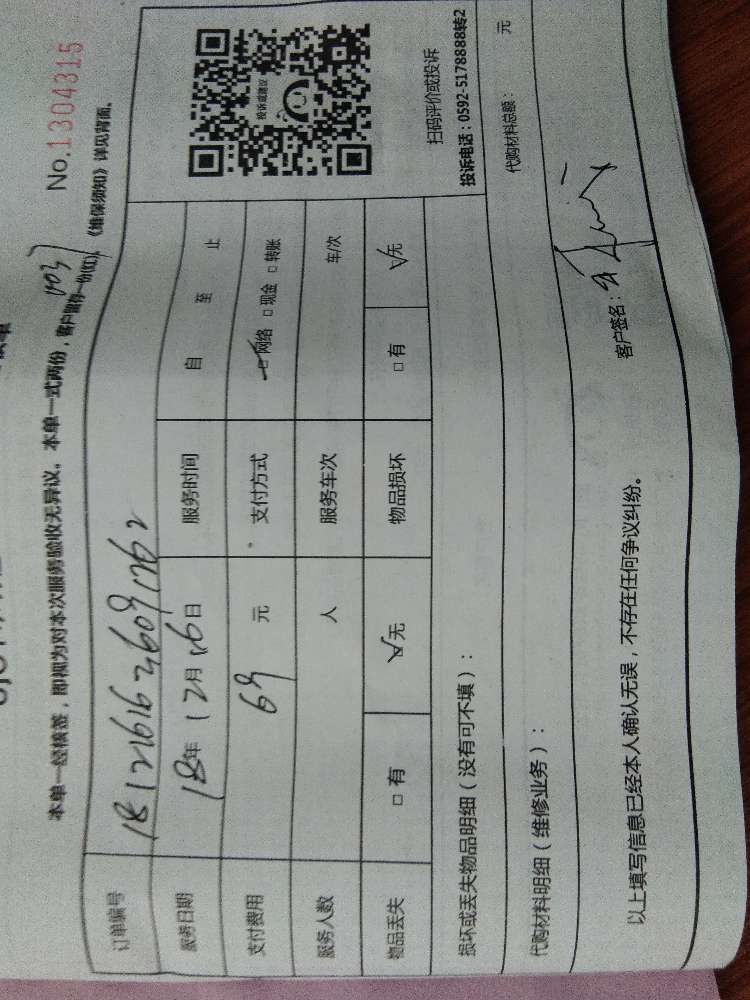 No.1304315
本单一经核签，即视为对本次服务验收无异议。本单一式两份，客户留存一份(红)，《维保须知》详见背面。
订单编号
服务日期 18年12月16日 服务时间 自 至 止
支付费用 69 元 支付方式 □网络 □现金 □转账
服务人数 人 服务车次 车/次
物品丢失 □有 □无 物品损坏 □有 □无
投诉或建议
扫码评价或投诉
投诉电话：0592-5178888转2
损坏或丢失物品明细（没有可不填）：
代购材料明细（维修业务）： 代购材料总额： 元
以上填写信息已经本人确认无误，不存在任何争议纠纷。 客户签名：